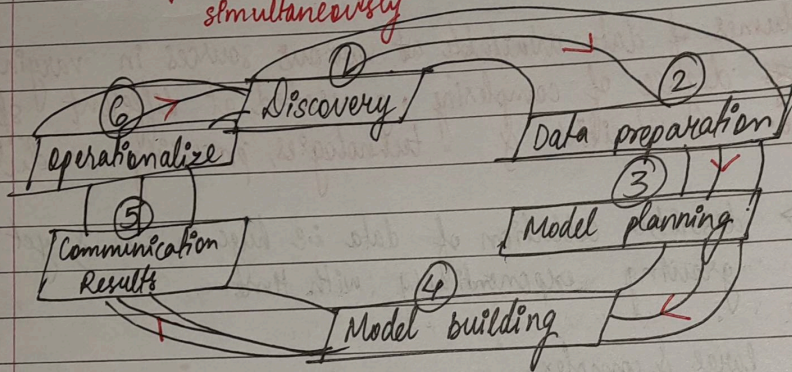 simultaneously
1
Discovery
2
Data preparation
3
Model planning
4
Model building
5
Communication
Results
6
operationalize